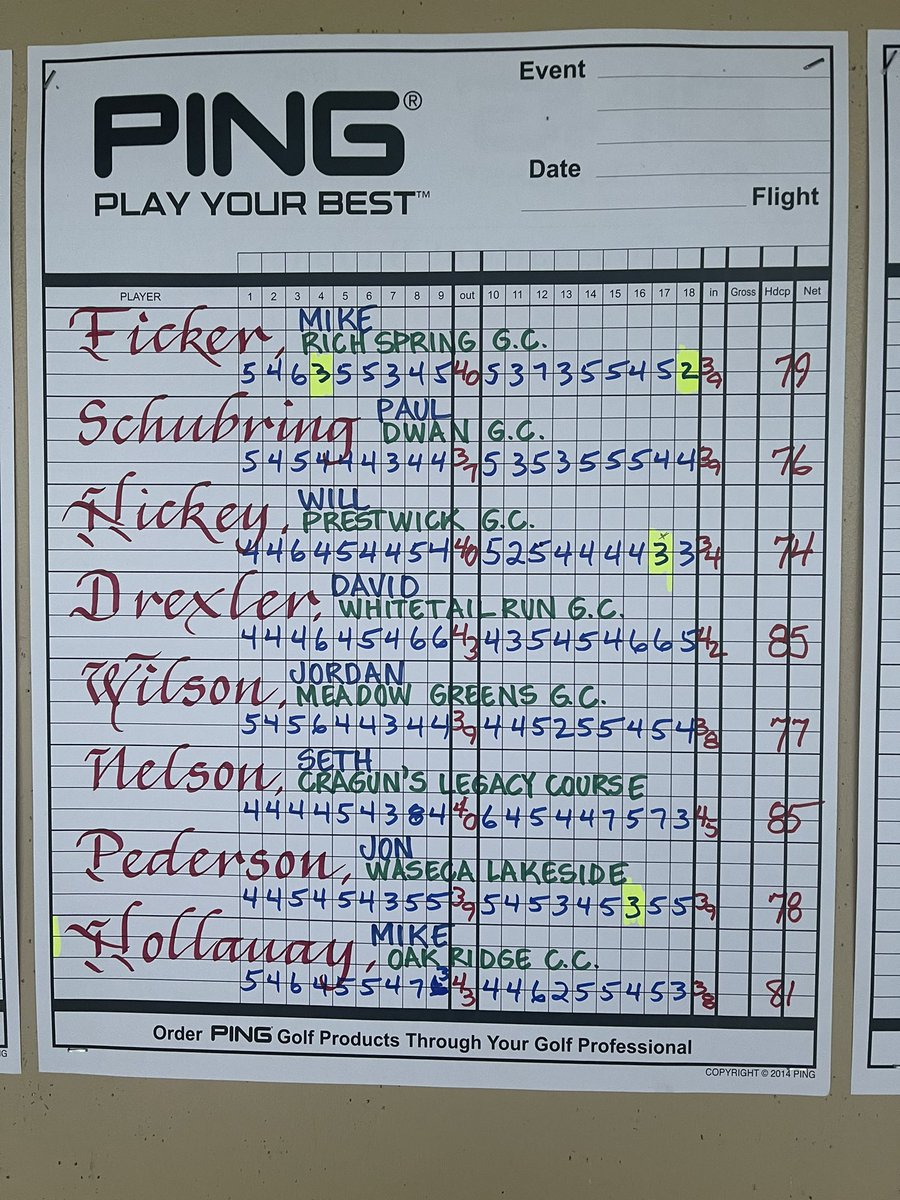 PING®
PLAY YOUR BEST™
Event
Date
Flight
PLAYER 1 2 3 4 5 6 7 8 9 out 10 11 12 13 14 15 16 17 18 in Gross Hdcp Net
Ficker, MIKE
RICH SPRING G.C.
5 4 6 3 5 5 3 4 5 40 5 3 7 3 5 5 4 5 2 39 79
Schubring PAUL
DWAN G.C.
5 4 5 4 4 4 3 4 4 37 5 3 5 3 5 5 5 4 4 39 76
Hickey, WILL
PRESTWICK G.C.
4 4 6 4 5 4 4 5 4 40 5 2 5 4 4 4 4 3 3 34 74
Drexler, DAVID
WHITETAIL RUN G.C.
4 4 4 6 4 5 4 6 6 43 4 3 5 4 5 4 6 6 5 42 85
Wilson, JORDAN
MEADOW GREENS G.C.
5 4 5 6 4 4 3 4 4 39 4 4 5 2 5 5 4 5 4 38 77
Nelson, SETH
CRAGUN'S LEGACY COURSE
4 4 4 4 5 4 3 8 4 40 6 4 5 4 4 7 5 7 3 45 85
Pederson, JON
WASECA LAKESIDE
4 4 5 4 5 4 3 5 5 39 5 4 5 3 4 5 3 5 5 39 78
Hollauay, MIKE
OAK RIDGE C.C.
5 4 6 4 5 5 4 7 3 43 4 4 6 2 5 5 4 5 3 38 81
Order PING Golf Products Through Your Golf Professional
COPYRIGHT © 2014 PING